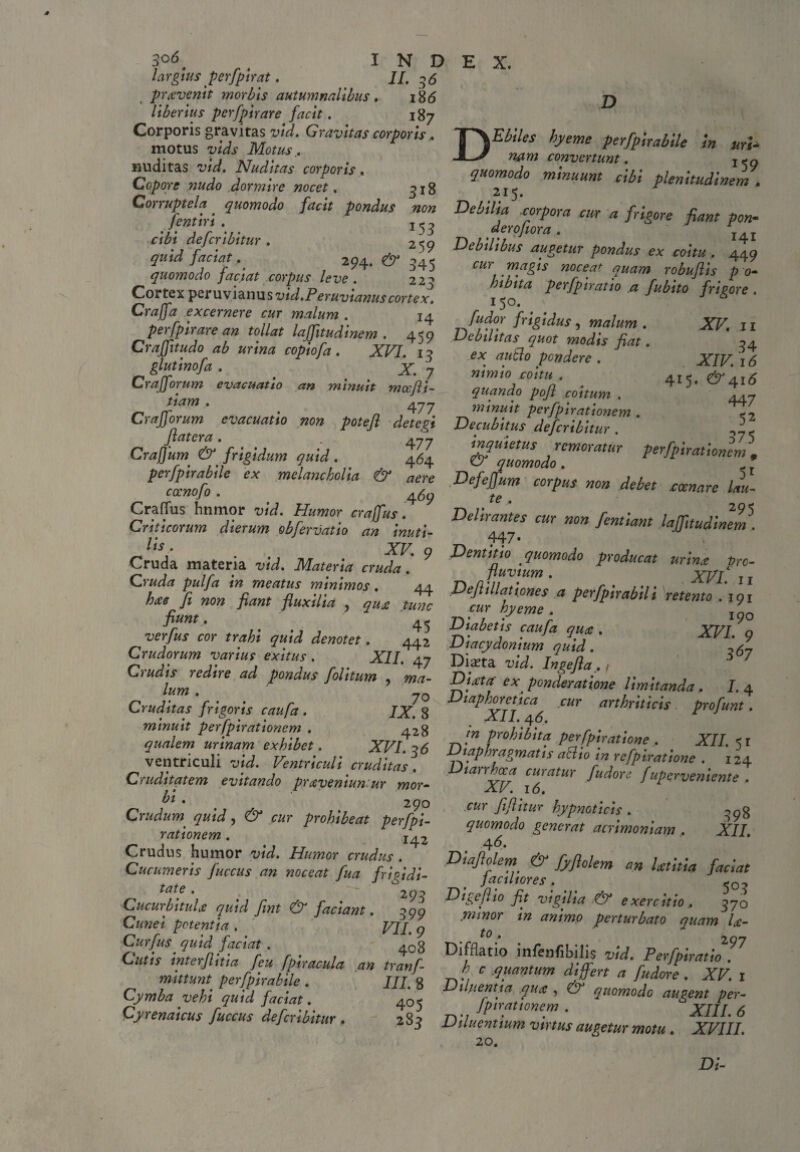 306 INDEX.
largius perſpirat. II. 36
prævenit morbis autumnalibus. 186
liberius perſpirare facit. 187
Corporis gravitas vid. Gravitas corporis.
motus vids Motus.
nuditas vid. Nuditas corporis.
Copore nudo dormire nocet. 318
Corruptela quomodo facit pondus non
ſentiri. 153
cibi deſcribitur. 259
quid faciat. 294. & 345
quomodo faciat corpus leve. 223
Cortex peruvianus vid. Peruvianus cortex.
Craſſa excernere cur malum. 14
perſpirare an tollat laſſitudinem. 459
Craſſitudo ab urina copioſa. XVI. 13
glutinoſa. X. 7
Craſſorum evacuatio an minuit mœſti-
tiam. 477
Craſſorum evacuatio non poteſt detegi
ſtatera. 477
Craſſum & frigidum quid. 464
perſpirabile ex melancholia & aere
cœnoſo. 469
Craſſus humor vid. Humor craſſus.
Criticorum dierum obſervatio an inuti-
lis. XV. 9
Cruda materia vid. Materia cruda.
Cruda pulſa in meatus minimos. 44
hæc ſi non fiant fluxilia, quæ tunc
fiunt. 45
verſus cor trahi quid denotet. 442
Crudorum varius exitus. XII. 47
Crudis redire ad pondus ſolitum, ma-
lum. 70
Cruditas frigoris cauſa. IX. 8
minuit perſpirationem. 428
qualem urinam exhibet. XVI. 36
ventriculi vid. Ventriculi cruditas.
Cruditatem evitando præveniuntur mor-
bi. 290
Crudum quid, & cur prohibeat perſpi-
rationem. 142
Crudus humor vid. Humor crudus.
Cucumeris ſuccus an noceat ſua frigidi-
tate. 293
Cucurbitulæ quid ſint & faciant. 399
Cunei potentia. VII. 9
Curſus quid faciat. 408
Cutis interſtitia ſeu ſpiracula an tranſ-
mittunt perſpirabile. III. 8
Cymba vehi quid faciat. 405
Cyrenaicus ſuccus deſcribitur. 283
D
DEbiles hyeme perſpirabile in uri-
nam convertunt. 159
quomodo minuunt cibi plenitudinem.
215.
Debilia corpora cur a frigore fiant pon-
deroſiora. 141
Debilibus augetur pondus ex coitu. 449
cur magis noceat quam robuſtis pro-
hibita perſpiratio a ſubito frigore.
150.
ſudor frigidus, malum. XV. 11
Debilitas quot modis fiat. 34
ex aucto pondere. XIV. 16
nimio coitu. 415. & 416
quando poſt coitum. 447
minuit perſpirationem. 52
Decubitus deſcribitur. 375
inquietus remoratur perſpirationem,
& quomodo. 51
Defeſſum corpus non debet cœnare lau-
te. 295
Delirantes cur non ſentiant laſſitudinem.
447.
Dentitio quomodo producat urinæ pro-
fluvium. XVI. 11
Deſtillationes a perſpirabili retento. 191
cur hyeme. 190
Diabetis cauſa quæ. XVI. 9
Diacydonium quid. 367
Diæta vid. Ingeſta.
Diæta ex ponderatione limitanda. I. 4
Diaphoretica cur arthriticis proſunt.
XII. 46.
in prohibita perſpiratione. XII. 51
Diaphragmatis actio in reſpiratione. 124
Diarrhœa curatur ſudore ſuperveniente.
XV. 16.
cur ſiſtitur hypnoticis. 398
quomodo generat acrimoniam. XII.
46.
Diaſtolem & ſyſtolem an lætitia faciat
faciliores. 503
Digeſtio fit vigilia & exercitio. 370
minor in animo perturbato quam læ-
to. 297
Difflatio inſenſibilis vid. Perſpiratio.
h c quantum differt a ſudore. XV. 1
Diluentia quæ, & quomodo augent per-
ſpirationem. XIII. 6
Diluentium virtus augetur motu. XVIII.
20.
Di-